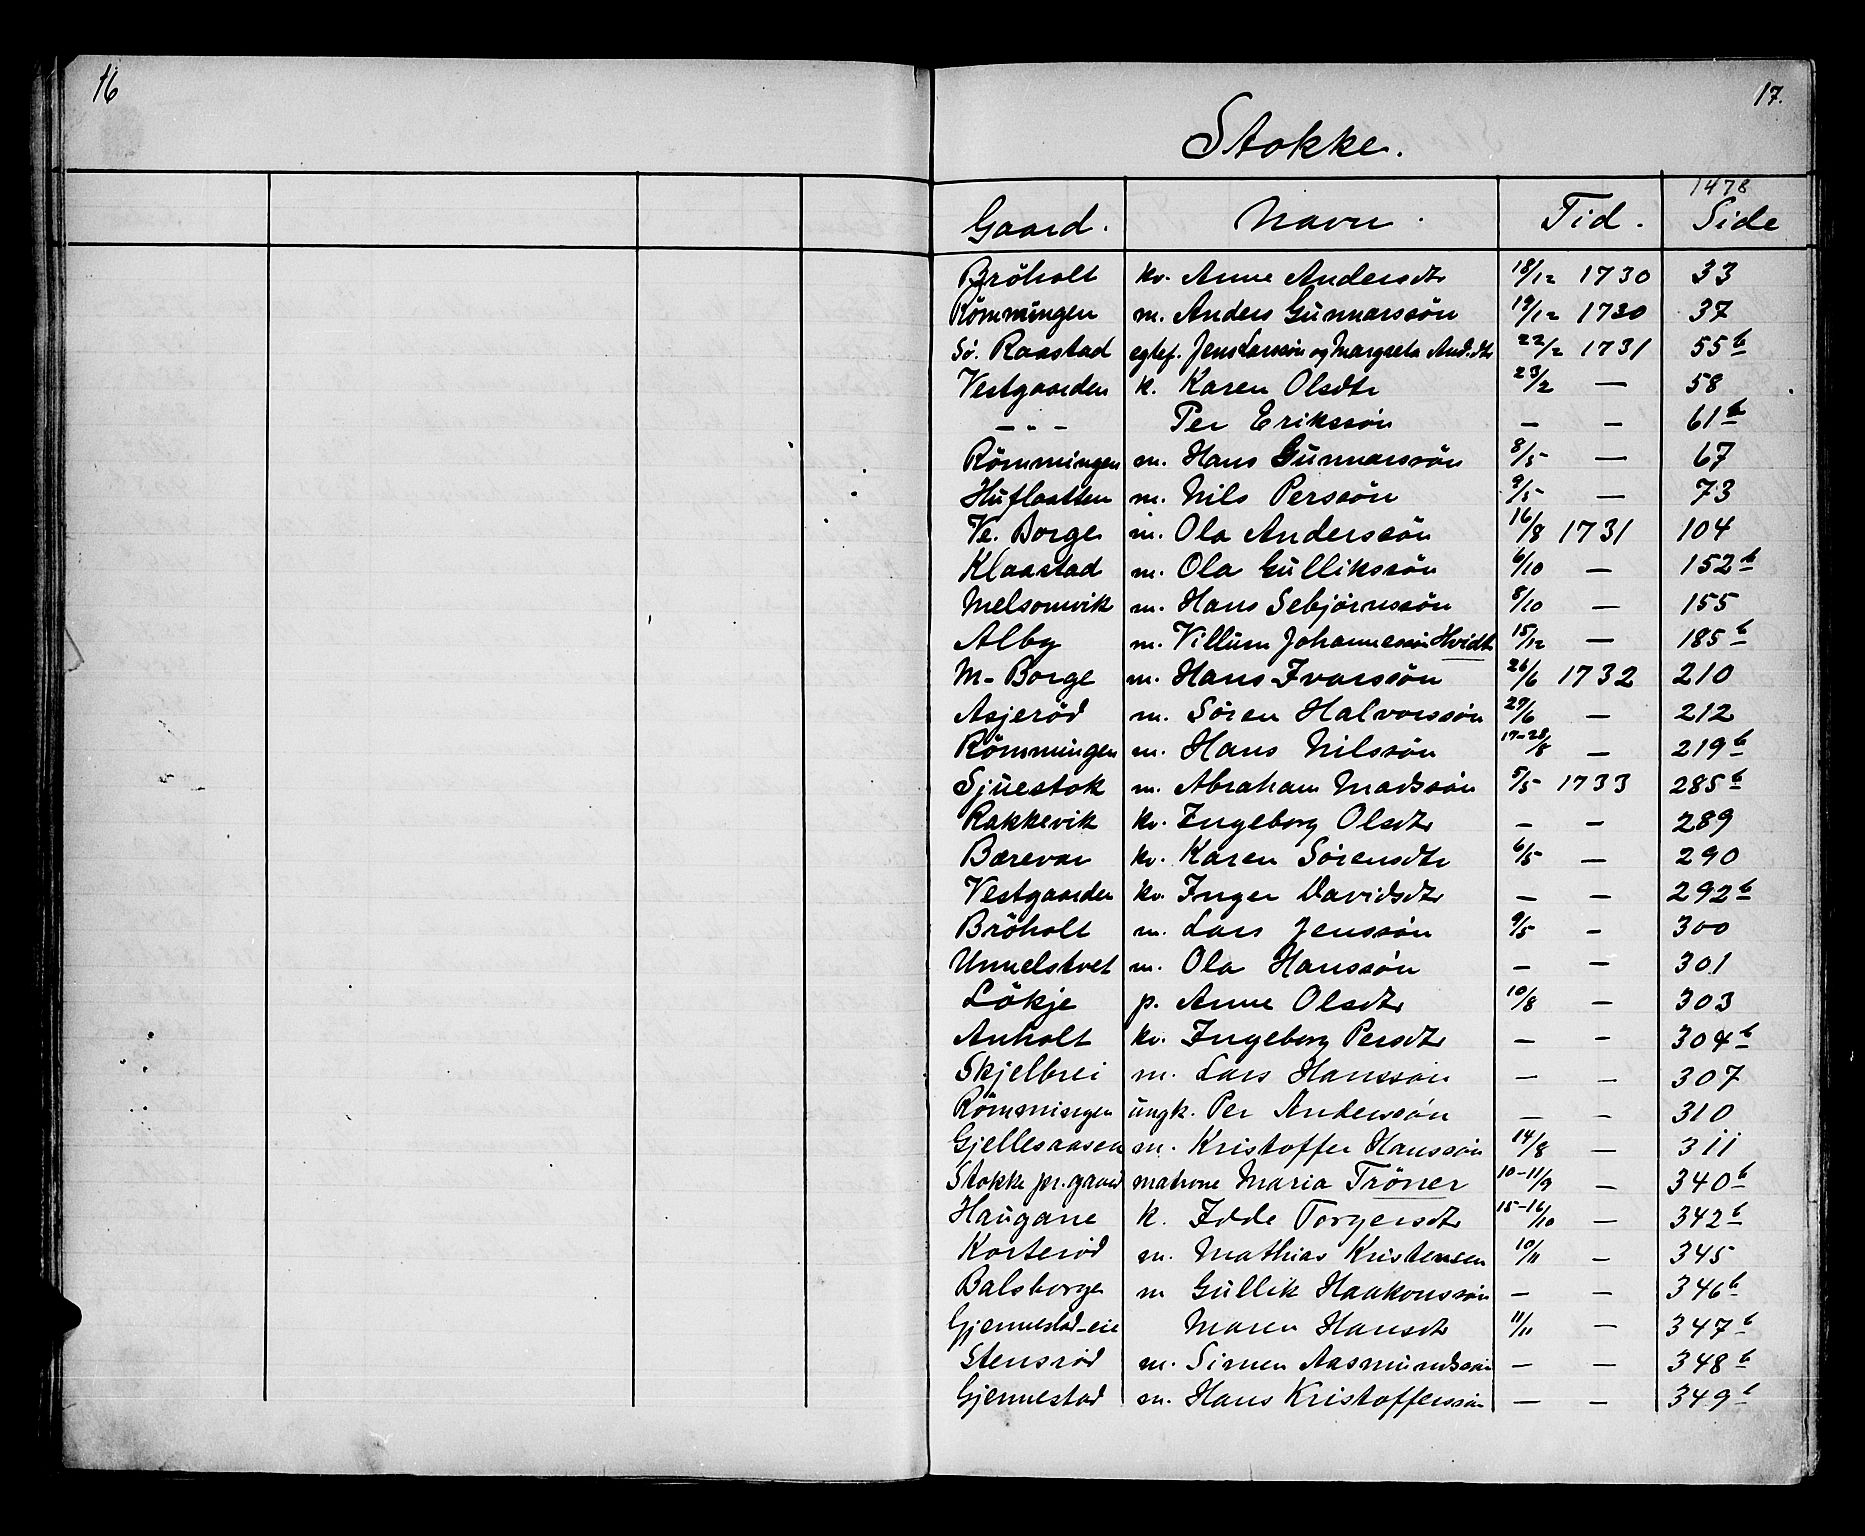 16
17.
Stokke.
1478
Gaard. Navn. Tid. Side
Bröholt kv. Anne Andersdtr 18/12 1730 33
Römmingen m. Anders Gunnarssön 19/12 1730 37
Sö. Raastad egtef. Jens Larssön og Margreta And.dtr 22/2 1731 55 b
Vestgaarden k. Karen Olsdtr 23/2 — 58
— " — Per Erikssön — — 61 b
Römmingen m. Hans Gunnarssön 8/5 — 67
Huflaatten m. Nils Perssön 9/5 — 73
Ve. Borge m. Ola Anderssön 16/8 1731 104
Klaastad m. Ola Gullikssön 6/10 — 152 b
Melsomvik m. Hans Sebjörnssön 8/10 — 155
Alby m. Villum Johannessön Hvidt 15/12 — 185 b
M. Borge m. Hans Ivarssön 26/6 1732 210
Asjeröd m. Sören Halvorssön 27/6 — 212
Römmingen m. Hans Nilssön 17-28/8 — 219 b
Sjuestok m. Abraham Madssön 5/5 1733 285 b
Rakkevik kv. Ingeborg Olsdtr — — 289
Bærevar kv. Karen Sörensdtr 6/5 — 290
Vestgaarden kv. Inger Davidsdtr — — 292 b
Bröholt m. Lars Jenssön 9/5 — 300
Unnelstvet m. Ola Hanssön — — 301
Lökje p. Anne Olsdtr 10/8 — 303
Anholt kv. Ingeborg Persdtr — — 304 b
Skjelbrei m. Lars Hanssön — — 307
Römmingen ungk. Per Anderssön — — 310
Gjellesaasen m. Kristoffer Hanssön 14/8 — 311
Stokke pr.gaard matrone Maria Tröner 10-11/9 — 340 b
Haugane k. Idde Torgersdtr 15-16/10 — 342 b
Korteröd m. Mathias Kristensen 10/11 — 345
Balsborge m Gullik Haakonssön — — 346 b
Gjennestad-eie Maren Hansdtr 11/11 — 347 b
Stensröd m. Simen Aasmundssön — — 348 b
Gjennestad m. Hans Kristofferssön — — 349 b